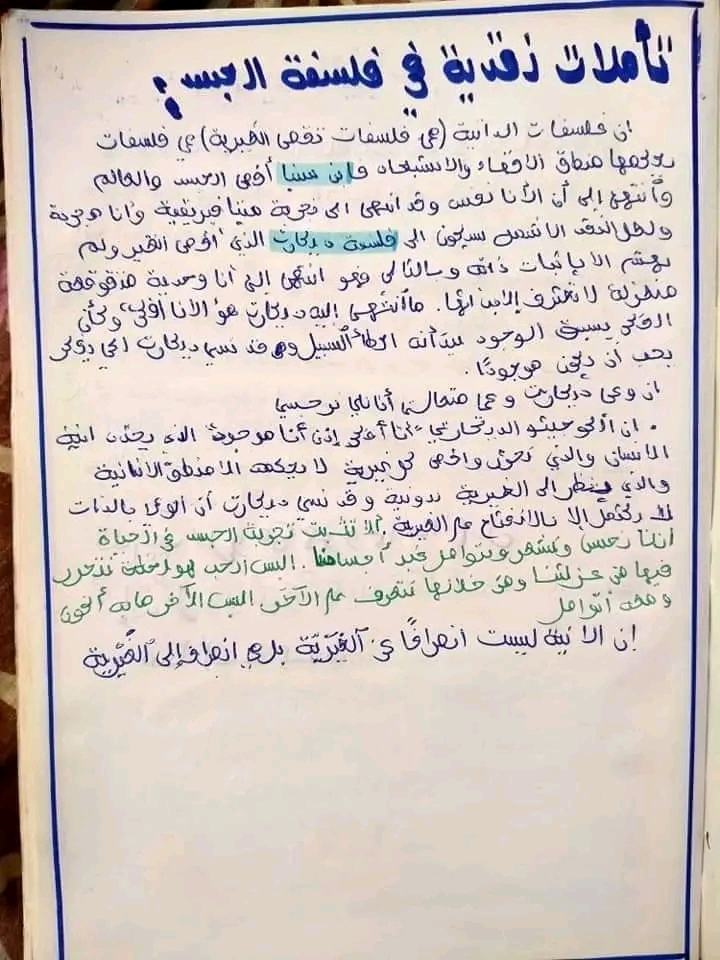 تأملات نقدية في فلسفة الجسد؟
إن فلسفات الذاتية (هي فلسفات تقصي الغيرية) هي فلسفات
يحكمها منطق الإقصاء والاستبعاد فابن سينا أقصى الجسد والعالم
وانتهى إلى أن الأنا نفس وقد انتهى إلى تجربة ميتافيزيقية وأنا مجردة
ولعل النقد الأشمل سيكون إلى فلسفة ديكارت الذي أقصى الغير ولم
يهتم إلا بإثبات ذاته وبالتالي فهو انتهى إلى أنا وحدية متقوقعة
منعزلة لا تعترف إلا بذاتها. ما انتهى إليه ديكارت هو الأنا أفكر، وكأن
الفكر يسبق الوجود غير أنه أخطأ السبيل وقد نسي ديكارت لكي يفكر
يجب أن يكون موجودًا.
إن وعي ديكارت وعيا متعالي أناني نرجسي
. إن الكوجيتو الديكارتي "أنا أفكر إذن أنا موجود" الذي يحدد إنية
الإنسان والذي تحول واقصى كل غيرية لا يحكمه إلا منطق الأنانية
والذي ينظر إلى الغيرية بدونية وقد نسي ديكارت أن الوعي بالذات
لا يكتمل إلا بالانفتاح على الغيرية. ألا تثبت تجربة الجسد في الحياة
أننا نحس ونشعر ونتواصل عبر أجسامنا. أليس الحب هو لحظة نتحرر
فيها من عزلتنا ومن خلالها نتعرف على الآخر أليس الآخر هابه أكون
ومعه أتواصل
إن الإنية ليست انصرافًا عن الغَيْرِيّة بل هي انصراف إلى الغَيْرية